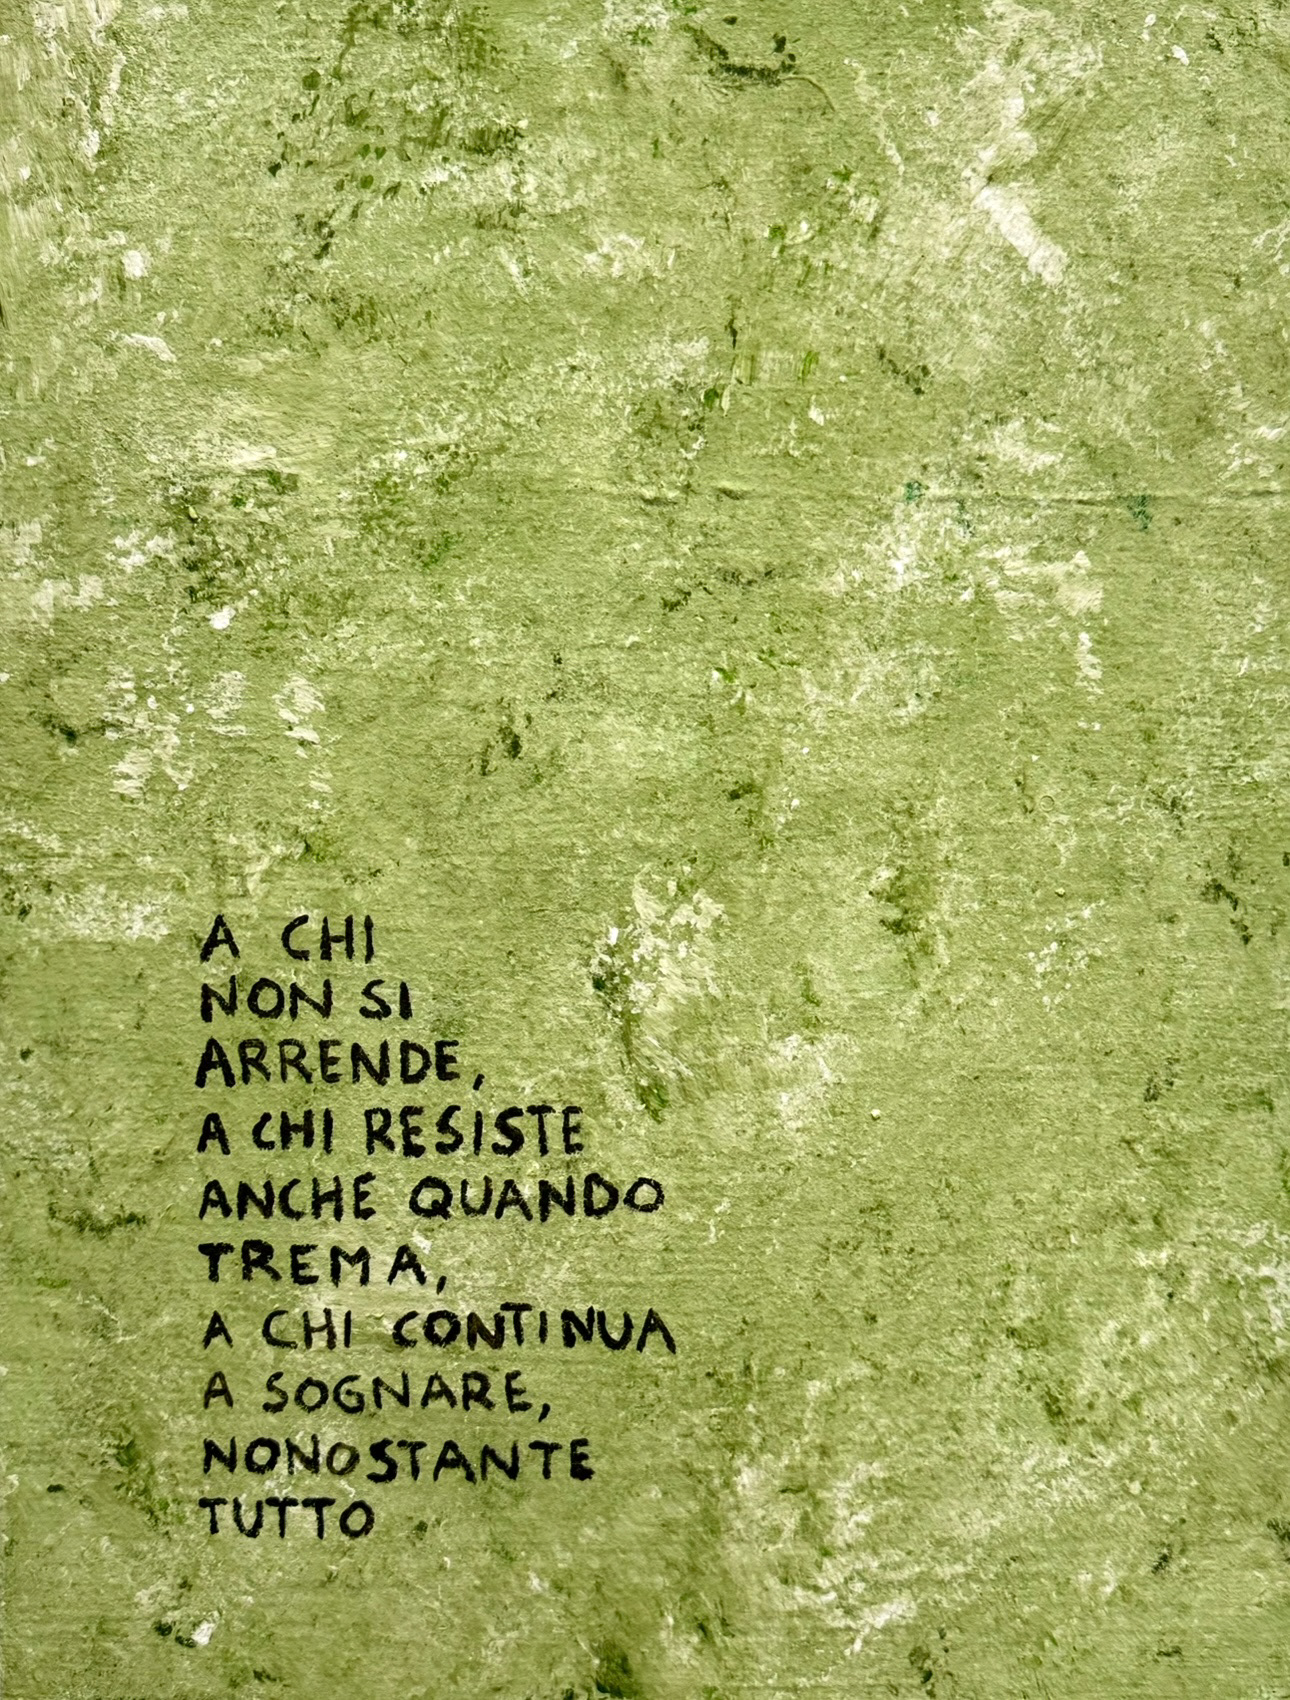 A CHI
NON SI
ARRENDE,
A CHI RESISTE
ANCHE QUANDO
TREMA,
A CHI CONTINUA
A SOGNARE,
NONOSTANTE
TUTTO